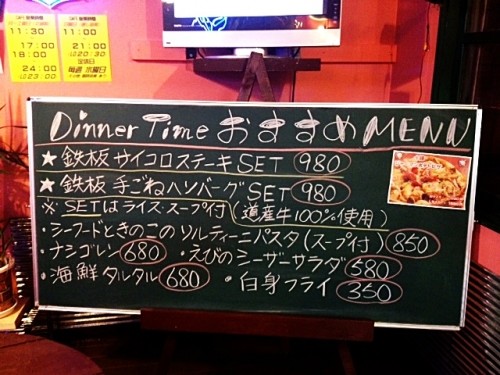 11:30
17:00
18:00
24:00
11:00
21:00
定休日
毎週 水曜日
Dinner Time おすすめ MENU
★ 鉄板 サイコロステーキ SET 980
★ 鉄板 手ごねハンバーグ SET 980
※ SETはライス・スープ付 (道産牛100%使用)
・シーフードときのこの ソルティーニパスタ (スープ付) 850
・ナシゴレン 680 ・えびのシーザーサラダ 580
・海鮮タルタル 680 ・白身フライ 350